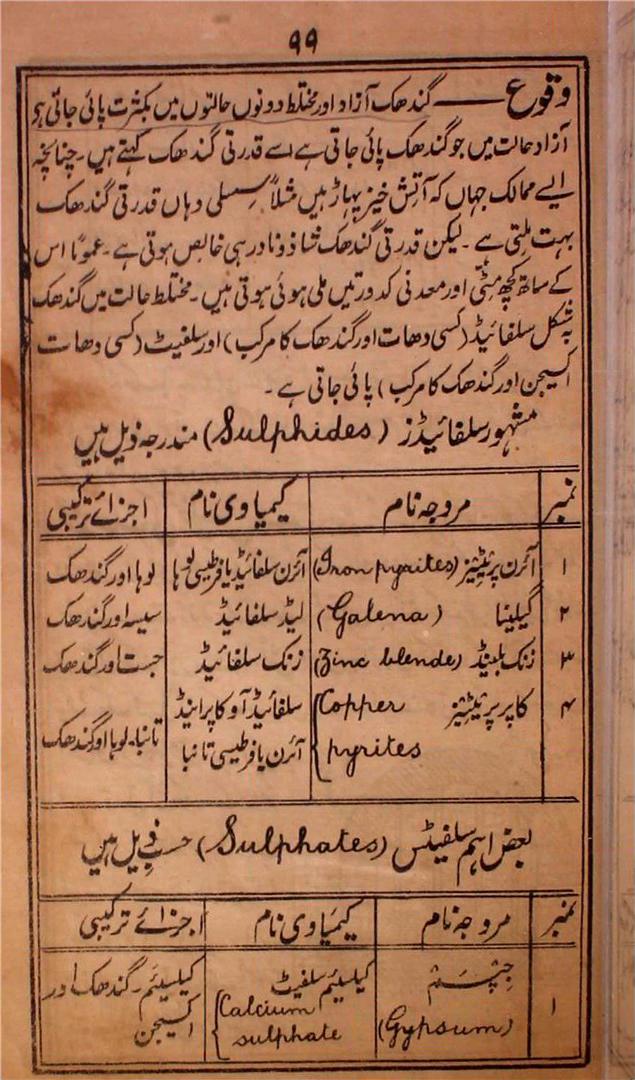 ۹۹
وقوع — گندھک آزاد اور مختلط دونوں حالتوں میں بکثرت پائی جاتی ہی
آزاد حالت میں جو گندھک پائی جاتی ہے اسے قدرتی گندھک کہتے ہیں۔ چنانچہ
ایسے ممالک جہاں کہ آتش خیز پہاڑ ہیں مثلاً سسلی وہاں قدرتی گندھک
بہت ملتی ہے۔ لیکن قدرتی گندھک شاذ و نادر ہی خالص ہوتی ہے۔ عموماً اس
کے ساتھ کچھ مٹی اور معدنی کدورتیں ملی ہوئی ہوتی ہیں۔ مختلط حالت میں گندھک
بہ شکل سلفائیڈ (کسی دھات اور گندھک کا مرکب) اور سلفیٹ (کسی دھات
اکسیجن اور گندھک کا مرکب) پائی جاتی ہے۔
مشہور سلفائیڈز (Sulphides) مندرجہ ذیل ہیں
نمبر مروجہ نام کیمیاوی نام اجزائے ترکیبی
۱ آئرن پرئیٹیز (Iron pyrites) آئرن سلفائیڈ یا قرطیسی لوہا لوہا اور گندھک
۲ گیلینا (Galena) لیڈ سلفائیڈ سیسہ اور گندھک
۳ زنک بلینڈ (Zinc blende) زنک سلفائیڈ جست اور گندھک
۴ کاپر پرئیٹیز Copper pyrites سلفائیڈ آو کاپر اینڈ
آئرن یا قرطیسی تانبا تانبا۔ لوہا اور گندھک
بعض اہم سلفیٹس (Sulphates) حسب ذیل ہیں
نمبر مروجہ نام کیمیاوی نام اجزائے ترکیبی
۱ جپسم (Gypsum) کیلسیئم سلفیٹ Calcium sulphate کیلسیئم۔ گندھک اور
اکسیجن